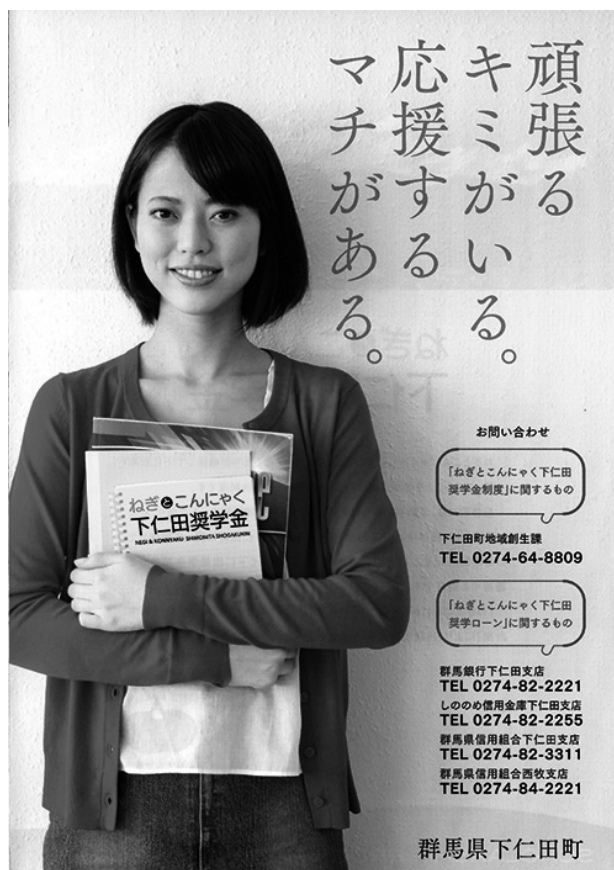 頑張る
キミがいる。
応援する
マチがある。
ねぎとこんにゃく
下仁田奨学金
NEGI & KONNYAKU SHIMONITA SHOGAKUKIN
お問い合わせ
「ねぎとこんにゃく下仁田
奨学金制度」に関するもの
下仁田町地域創生課
TEL 0274-64-8809
「ねぎとこんにゃく下仁田
奨学ローン」に関するもの
群馬銀行下仁田支店
TEL 0274-82-2221
しののめ信用金庫下仁田支店
TEL 0274-82-2255
群馬県信用組合下仁田支店
TEL 0274-82-3311
群馬県信用組合西牧支店
TEL 0274-84-2221
群馬県下仁田町